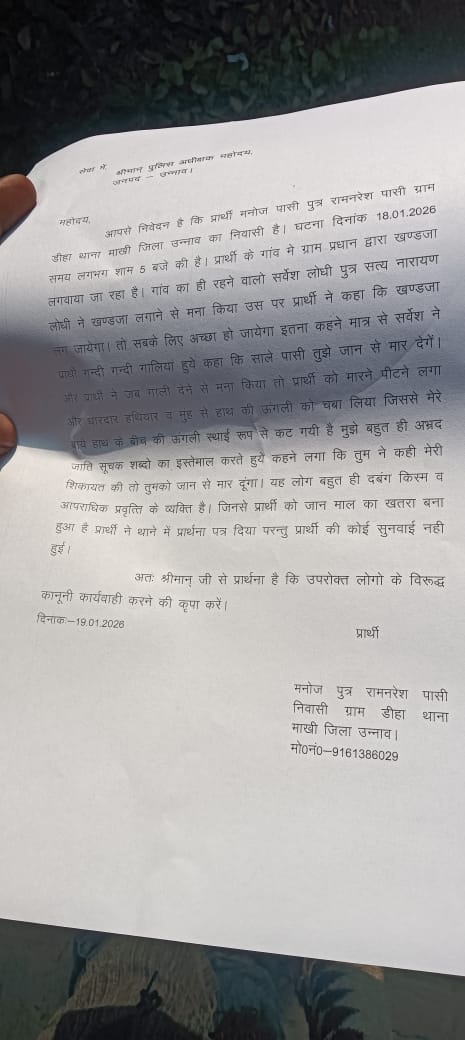 सेवा में,
श्रीमान् पुलिस अधीक्षक महोदय,
जनपद – उन्नाव।
महोदय,
आपसे निवेदन है कि प्रार्थी मनोज पासी पुत्र रामनरेश पासी ग्राम
डीहा थाना माखी जिला उन्नाव का निवासी है। घटना दिनांक 18.01.2026
समय लगभग शाम 5 बजे की है। प्रार्थी के गांव मे ग्राम प्रधान द्वारा खण्डजा
लगवाया जा रहा है। गांव का ही रहने वालो सर्वेश लोधी पुत्र सत्य नारायण
लोधी ने खण्डजा लगाने से मना किया उस पर प्रार्थी ने कहा कि खण्डजा
लग जायेगा। तो सबके लिए अच्छा हो जायेगा इतना कहने मात्र से सर्वेश ने
प्रार्थी गन्दी गन्दी गालिया हुये कहा कि साले पासी तुझे जान से मार देगें।
और प्रार्थी ने जब गाली देने से मना किया तो प्रार्थी को मारने पीटने लगा
और धारदार हथियार व मुह से हाथ की ऊगली को चबा लिया जिससे मेरे
हाथ के बीच की ऊगली स्थाई रूप से कट गयी है मुझे बहुत ही अभ्रद
जाति सूचक शब्दो का इस्तेमाल करते हुये कहने लगा कि तुम ने कही मेरी
शिकायत की तो तुमको जान से मार दूंगा। यह लोग बहुत ही दबंग किस्म व
आपराधिक प्रवृत्ति के व्यक्ति है। जिनसे प्रार्थी को जान माल का खतरा बना
हुआ है प्रार्थी ने थाने में प्रार्थना पत्र दिया परन्तु प्रार्थी की कोई सुनवाई नही
हुई।
अतः श्रीमान् जी से प्रार्थना है कि उपरोक्त लोगो के विरूद्ध
कानूनी कार्यवाही करने की कृपा करें।
दिनाक:–19.01.2026
प्रार्थी
मनोज पुत्र रामनरेश पासी
निवासी ग्राम डीहा थाना
माखी जिला उन्नाव।
मो0नं0–9161386029